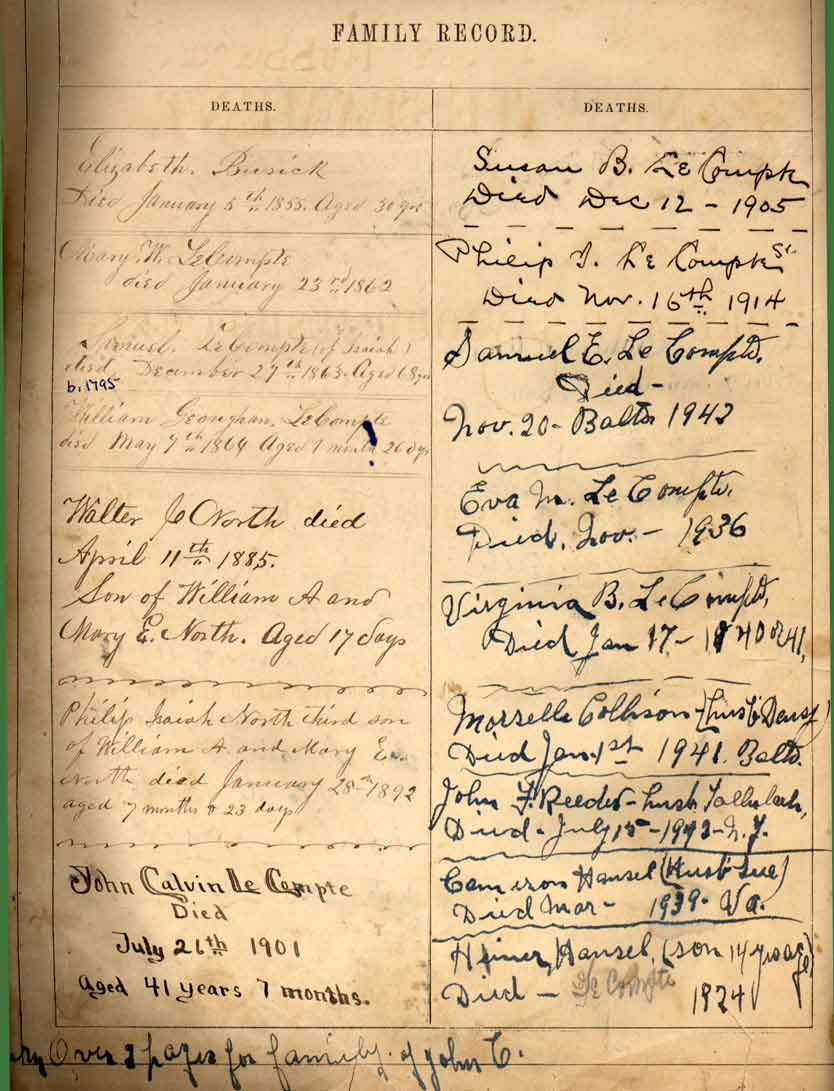 FAMILY RECORD.
DEATHS.
Elizabeth. Busick
Died January 5th 1855. Aged 30 yrs
Mary W. LeCompte
died January 23rd 1862
Samuel. LeCompte (of Isaiah)
died, December 27th 1863. Aged 68 yrs
b. 1795
William Geoughan. LeCompte
died May 7th 1864 Aged 1 month 26 dys
Walter J North died
April 11th 1885.
Son of William A and
Mary E. North. Aged 17 days
Philip Isaiah North third son
of William A. and Mary E.
North died January 28th 1892
aged 7 months & 23 days
John Calvin Le Compte
Died
July 26th 1901
Aged 41 years 7 months.
DEATHS.
Susan B. Le Compte
Died Dec 12 - 1905
Philip I. Le Compte Sr.
Died Nov. 16th 1914
Samuel E. Le Compte.
Died -
Nov. 20 - Balto 1942
Eva M. Le Compte.
Died. Nov. - 1936
Virginia B. Le Compte,
Died Jan 17 - 1940 or 41,
Morselle Collison - (husb Daisy)
Died Jan. 1st 1941. Balto.
John F. Reeder - husb
Died - July 15 - 1942 - N. J.
Cameron Hansel (Husb Sue)
Died Mar - 1939. Va.
Hansel, (son 14 yrs age)
Died - De Compte 1924
Over 2 pages for family of John C.